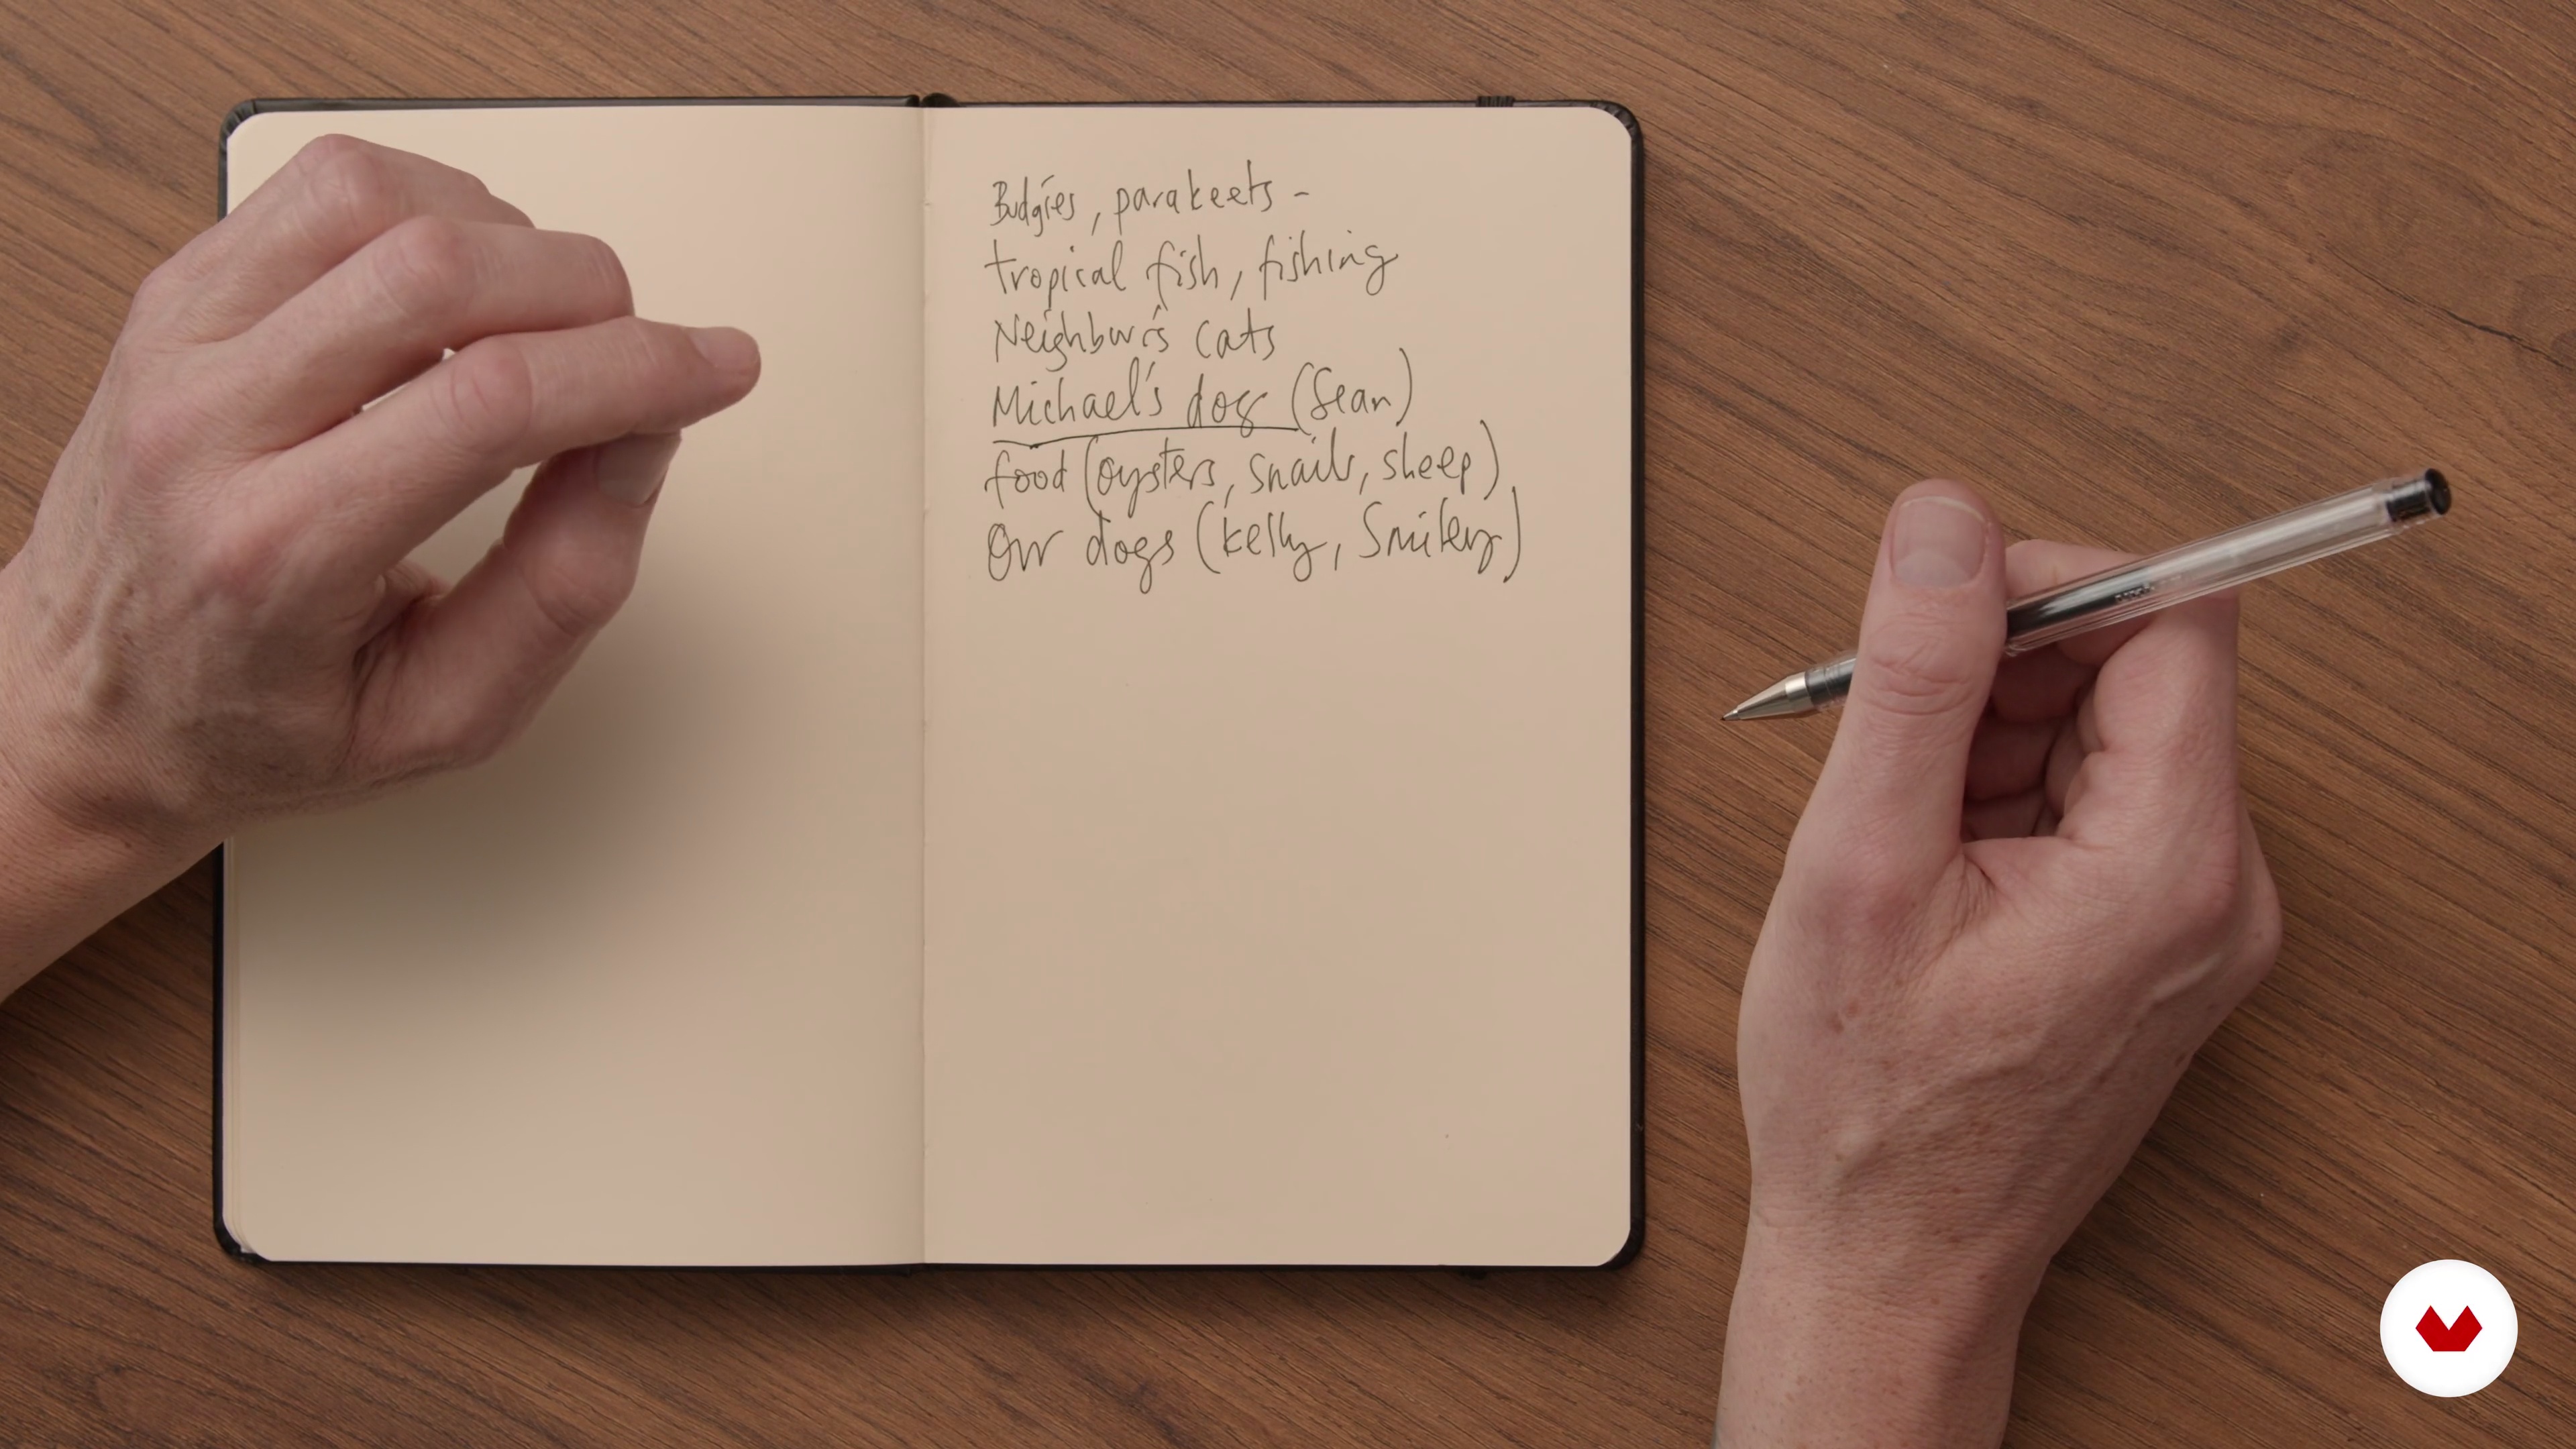 Budgies, parakeets -
tropical fish, fishing
Neighbour's cats
Michael's dog (Sean)
food (oysters, snails, sheep)
Our dogs (Kelly, Smiley)